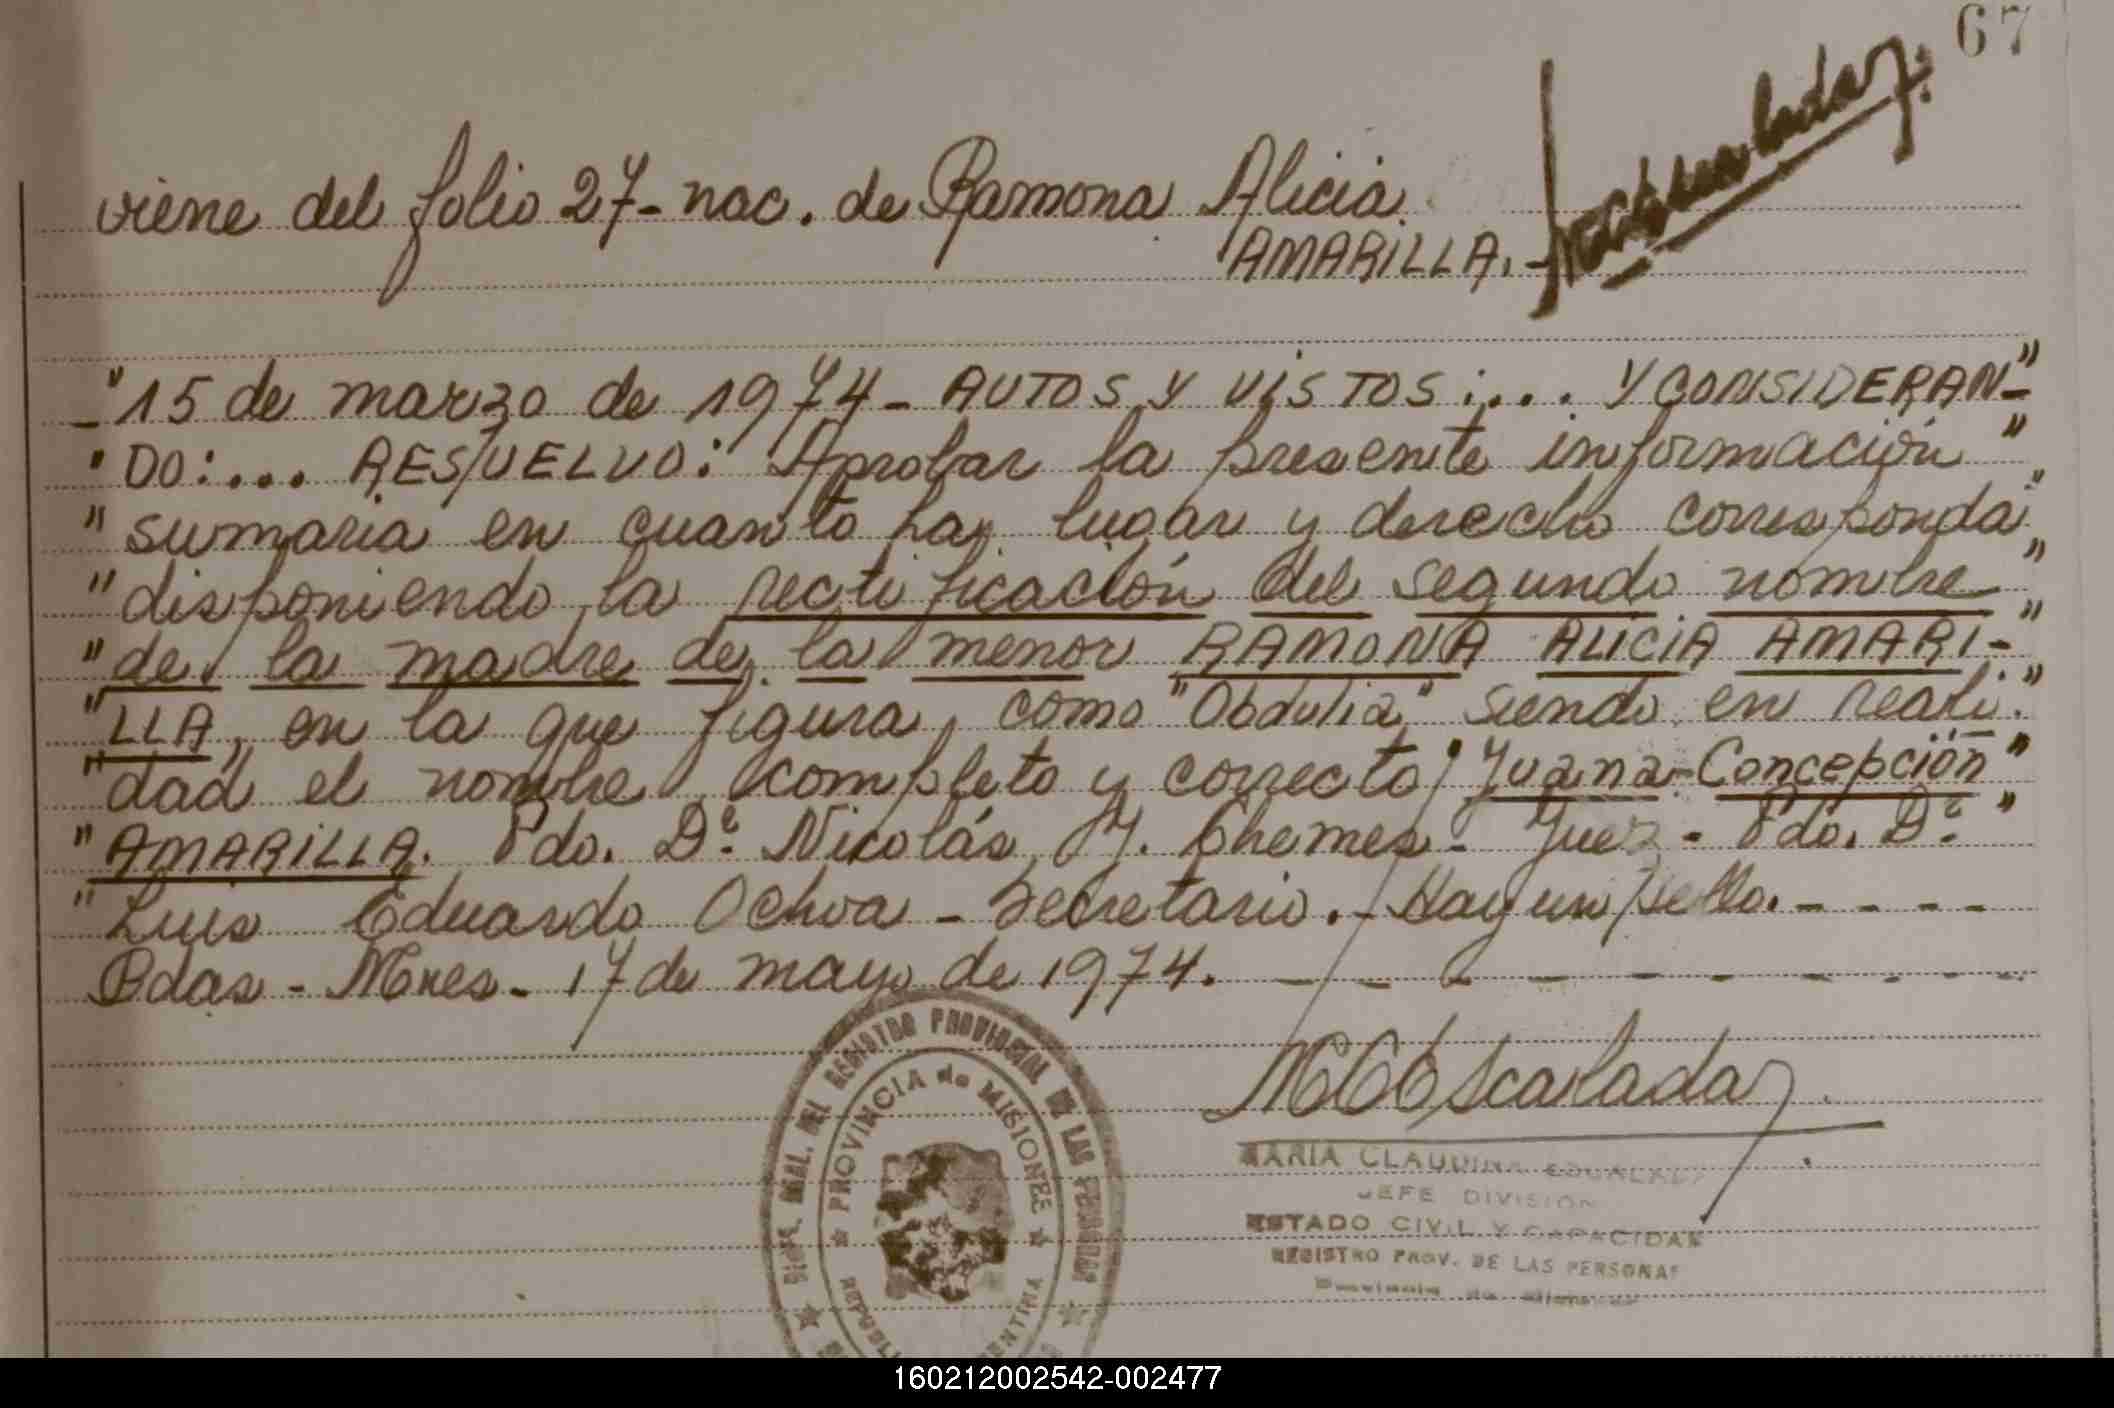 67
viene del folio 27- nac. de Ramona Alicia
AMARILLA.-
"15 de marzo de 1974- AUTOS Y VISTOS:... Y CONSIDERAN-"
"DO:... RESUELVO: Aprobar la presente información"
"sumaria en cuanto ha lugar y derecho corresponda"
"disponiendo la rectificación del segundo nombre"
"de la madre de la menor RAMONA ALICIA AMARI-"
"LLA, en la que figura como "Obdulia" siendo en reali-"
"dad el nombre completo y correcto: Juana Concepción"
"AMARILLA. Fdo. Dr. Nicolás J. Chemes- Juez- Fdo. Dr."
"Luis Eduardo Ochoa - Secretario.- Hay un sello.- - - - -
Pdas - Mnes- 17 de mayo de 1974. - - - - - - - - -
MCEscalada
MARIA CLAUDINA ESCALADA
JEFE DIVISION
ESTADO CIVIL Y CAPACIDAD
REGISTRO PROV. DE LAS PERSONAS
GRAL. DEL REGISTRO PROVINCIAL DE LAS PERSONAS
PROVINCIA de MISIONES
160212002542-002477